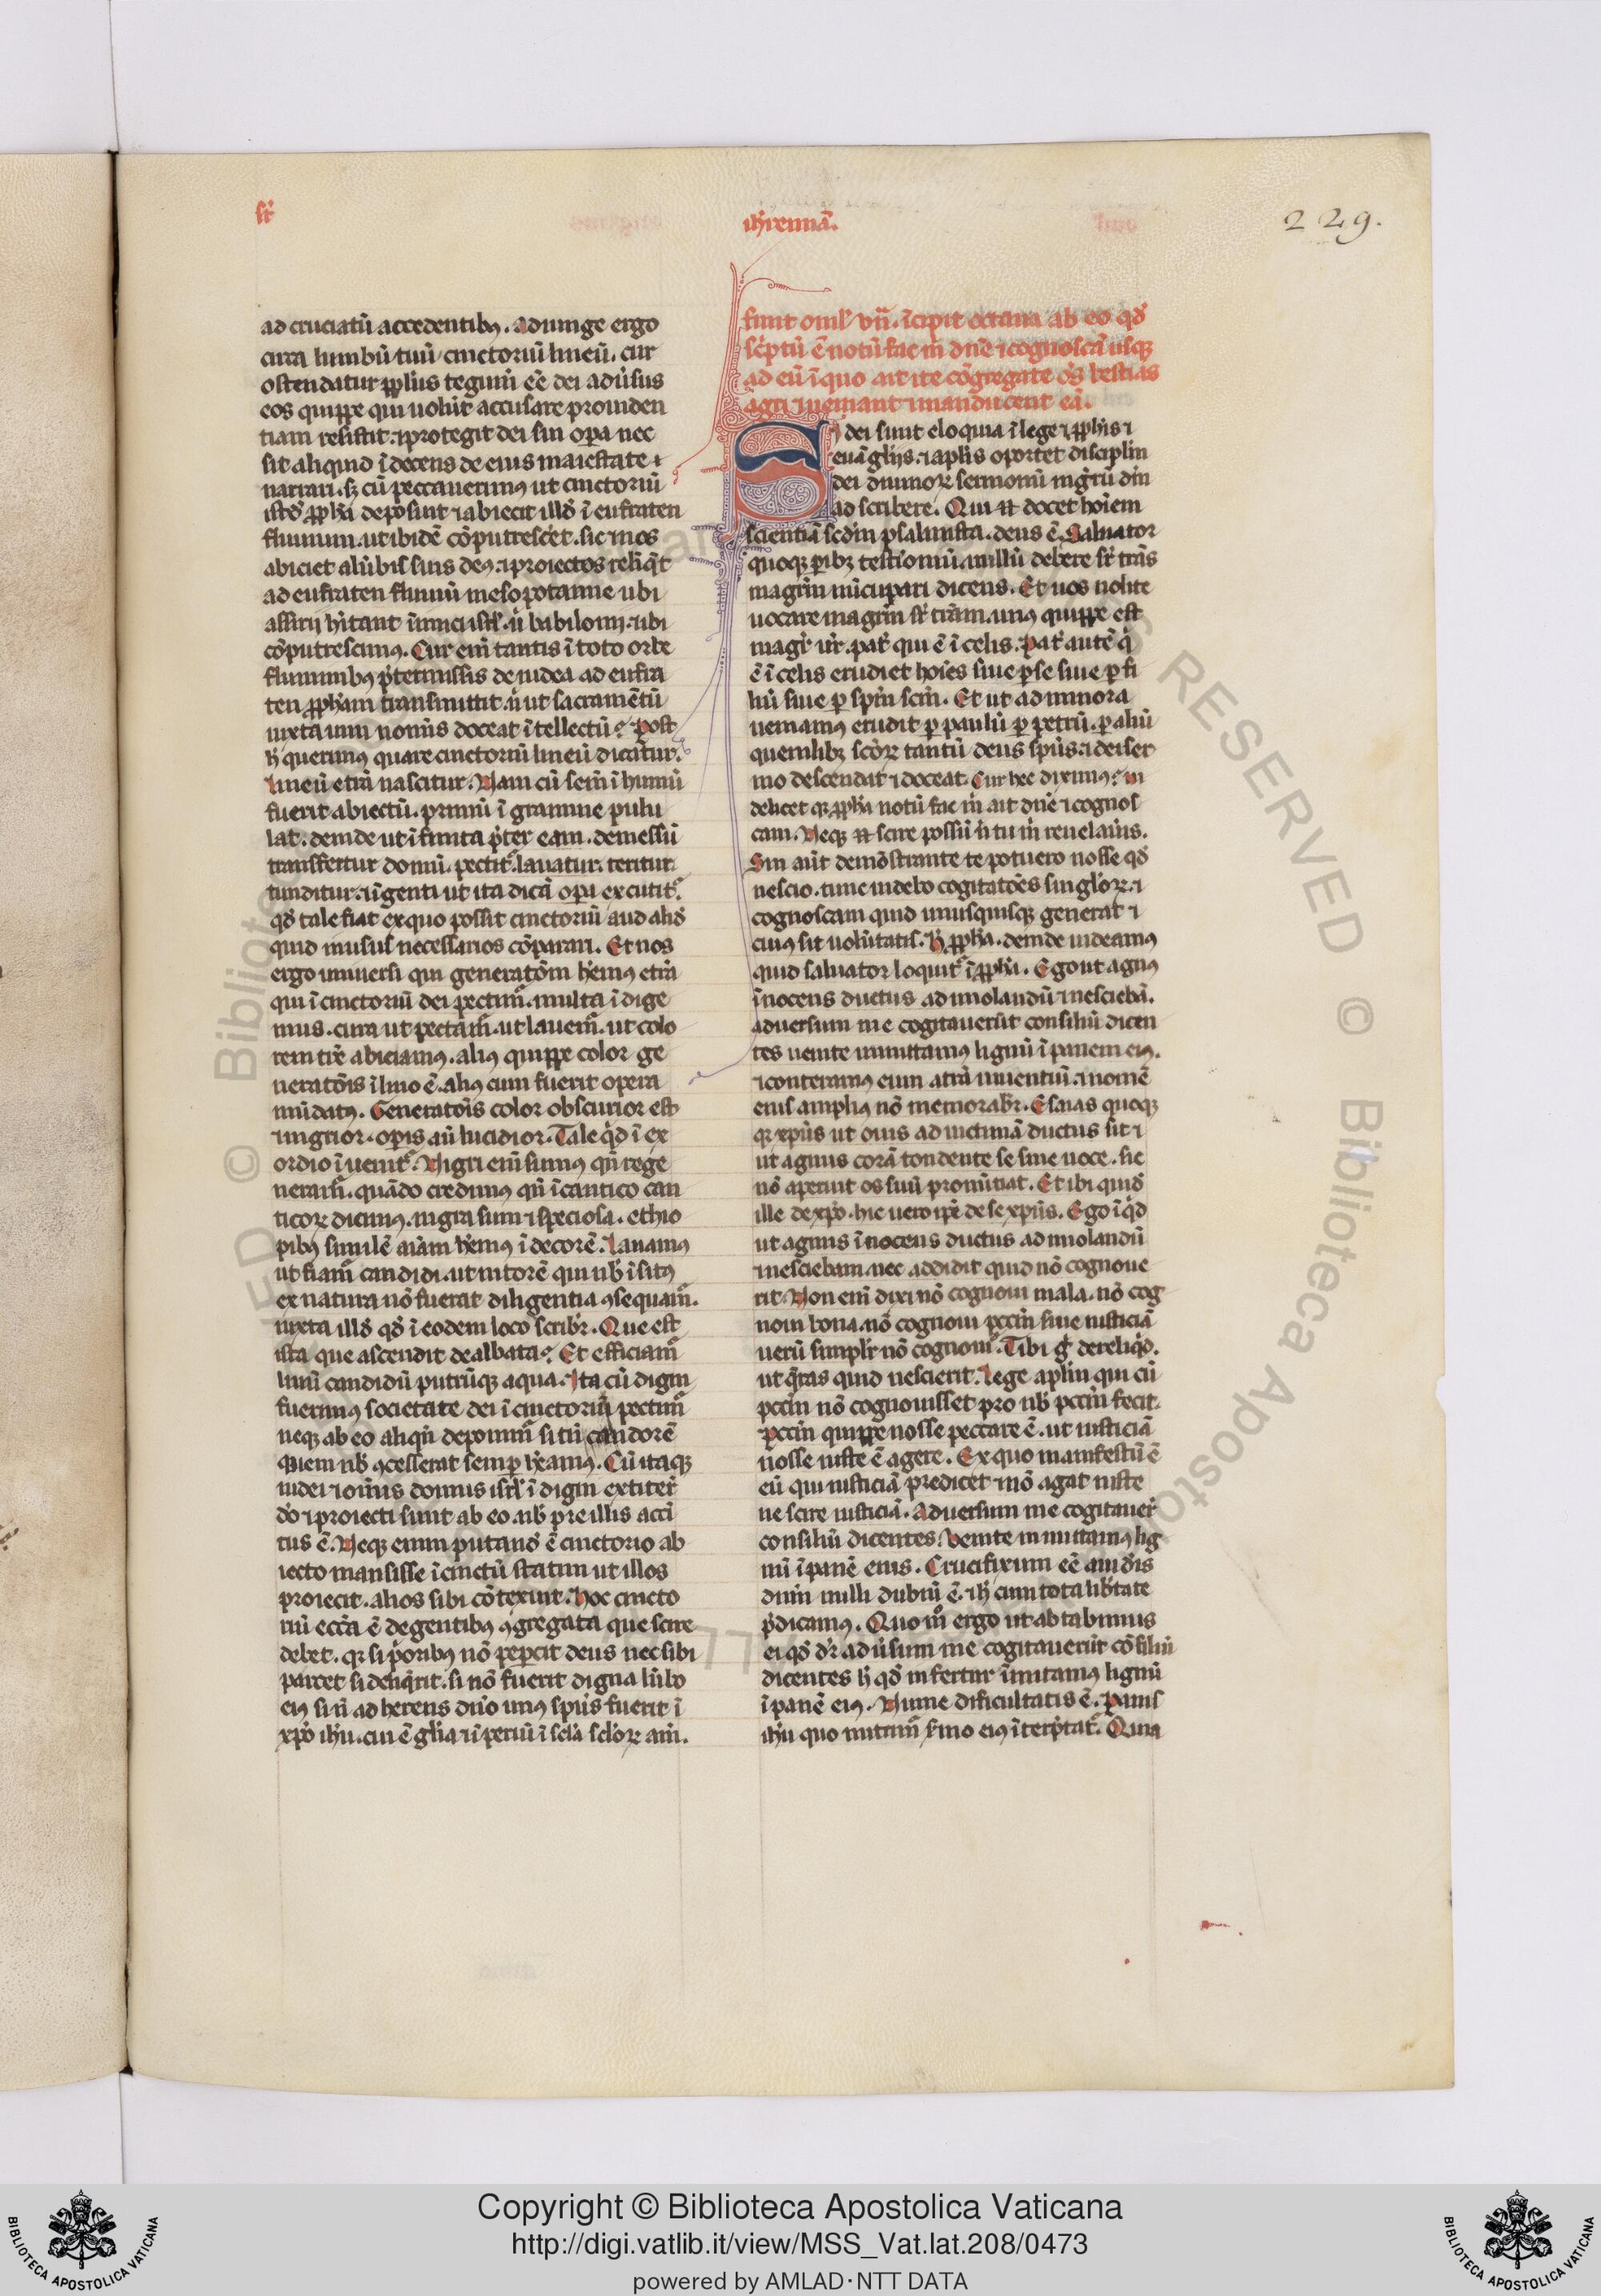 sr̄
ih'remiā.
229.
ad cruciatū accedentibꝰ. Adiunge ergo
circa lumbū tuū cinctoriū lineū. cur
ostendatur ꝓph'is tegum̄ eē dei adūsus
eos quippe qui uolūt accusare prouiden
tiam resistit. ⁊ protegit dei sin oꝑa nec
sit aliquid īdecens de eius maiestate ⁊
narrari. sꝫ cū peccauerimꝰ ut cinctoriū
istđ ꝓph'a deposuit ⁊ abiecit illđ ī eufraten
fluuium. ut ibidē cōputresc̄et. sic ⁊ nos
abiciet a lūbis suis deꝰ. ⁊ proiectos relīq̄t
ad eufraten fluuiū mesopotamie ubi
assirij h̄itant īimici isrl'. ū babilonij. ubi
cōputrescimꝰ. Cur eni tantis ī toto orbe
fluminibꝰ p̄termissis de iudea ad eufra
ten ꝓph'am transmittit. n̄ ut sacramētū
iuxta uim nomīis doceat ītellectū? Post
h̄ querimꝰ quare cinctoriū lineū dicatur.
Lineū e t'ra nascitur. Nam cū sem̄ ī humū
fuerit abiectū. primū ī gramine pulu
lat. deinde ut ī fruita p̄ter eam. demessū
transfertur domū. pectit᷑. lauatur. teritur.
tunditur. ⁊ īgenti ut ita dicā oꝑi excutit᷑.
qđ tale fiat ex quo possit cinctoriū aud aliđ
quid in usus necessarios cōparari. Et nos
ergo uniuersi qui generatōm h̄emꝰ e t'ra
qui ī cinctoriū dei pectim᷑. multa īdige
mus. cura ut pectam᷑. ut lauem᷑. ut colo
rem t'rē abiciamꝰ. aliꝰ quippe color ge
neratōis ī lino ē. aliꝰ cum fuerit opera
mūdatꝰ. Generatōis color obscurior est
⁊ nigrior. opis aū lucidior. Tale q̄d ī ex
ordio īuenit᷑. Nigri eni sumus qn̄ rege
neram᷑. quādo credimus qn̄ ī cantico can
ticoꝝ dicimꝰ. nigra sum ⁊ speciosa. ethio
pibꝰ similē aīam h̄emꝰ ī decorē. Lauamꝰ
ut fiam᷑ candidi. ut nitorē qui nob̄ īsitꝰ
ex natura nō fuerat diligentia ꝯsequam᷑.
iuxta illđ qđ ī eodem loco scribr̄. Que est
ista que ascendit dealbata? Et efficiam᷑
linū candidū putrūqꝫ aqua. Ita cū digni
fuerimꝰ societate dei ī cinctoriū pectim᷑
neqꝫ ab eo aliqn̄ deponim᷑ si tū candorē
quem nob̄ ꝯcesserat semꝑ h̄eamꝰ. Cū itaqꝫ
iudei ⁊ omīs domus isrl' īdigni extiter̄
do ⁊ proiecti sunt ab eo. nob̄ pre illis acci
tus ē. Neqꝫ enim putanđ ē cinctorio ab
iecto mansisse īcinctū statim ut illos
proiecit. alios sibi cōtexuit. Hoc cincto
riū eccl'a ē de gentibꝰ ꝯgregata que scire
debet. qꝫ si p̄oribꝰ nō peꝑcit deus nec sibi
parcet si delīq̄rit. si nō fuerit digna lūbo
eiꝰ si n̄ adherens dn̄o unꝰ spūs fuerit ī
xp̄o ih'u. cui ē gl'ia ⁊ īperiū ī scl'a scl'oꝝ am̄.
finit omīl' vn̄. īcipit octaua ab eo qđ
sc̄ptū ē notū fac m̄ dnē ⁊ cognoscā usqꝫ
ad eū ī quo ait ite cōgregate os̄ bestias
agri ⁊ ueniant ⁊ manducent eā.
Si dei sunt eloquia ī lege ⁊ ꝓph'is ⁊
euāgl'ijs. ⁊ aplis oportet disciplin
dei diuinoꝝ sermonū mgr̄ū dm̄
adscribere. Qui ꝛ docet hoīem
scientiā scđm psalmista. deus ē. Saluator
quoqꝫ ꝑibꝫ testioniū. nullū debere sr̄ t'ras
magrm̄ nūcupari dicens. Et uos nolite
uocare magrm̄ sr̄ t'ram. unꝰ quippe est
magr̄ ur̄. pat' qui ē ī celis. Pat' autē q̄
ē ī celis erudiet hoīes siue ꝑ se siue ꝑ fi
liū siue ꝑ spm̄ scm̄. Et ut ad minora
ueniamꝰ erudit ꝑ paulū ꝑ petrū. ꝑ aliū
quemlibꝫ sc̄oꝝ tantū deus spūs. ⁊ dei ser
mo descendat ⁊ doceat. Cur hec diximꝰ? ui
delicet qꝫ ꝓph'a notū fac m̄ ait dnē ⁊ cognos
cam. Neqꝫ ꝛ scire possū n̄ tu m̄ reuelaūis.
Sin aūt demōstrante te potuero nosse qđ
nescio. tunc uidebo cogitatōes singl'oꝝ. ⁊
cognoscam quid unusquisqꝫ generat ⁊
cuiꝰ sit uolūtatis. h̄ ꝓph'a. deinde uideamꝰ
quid saluator loquit᷑ ī ꝓph'a. Ego ut agnꝰ
īnocens ductus ad īmolandū ⁊ nesciebā.
aduersum me cogitauerūt consiliū dicen
tes uenite īmittamus lignū ī panem eiꝰ.
⁊ conteramꝰ eum a t'ra uiuentiū. ⁊ nomē
eius ampliꝰ nō memorabr̄. Esaias quoqꝫ
qꝫ xp̄us ut ouis ad uictimā ductus sit ⁊
ut agnus corā tondente se sine uoce. sic
nō aperuit os suū pronūtiat. Et ibi quiđ
ille de xp̄o. hic uero ip̄e de se xp̄us. Ego īq̄d
ut agnus īnocens ductus ad īmolandū
⁊ nesciebam. nec addidit quid nō cognoue
rit. Non eni dixi nō cognoui mala. nō cog
noui bona. nō cognoui pccm̄ siue iusticiā
uerū simpl'r nō cognoui. Tibi g' dereliq̄d.
ut q̄ras quid nescierit. Lege aplm̄ qui cū
pccm̄ nō cognouisset pro nob̄ pccm̄ fecit.
pccm̄ quippe nosse peccare ē. ut iusticiā
nosse iuste ē agere. Ex quo manifestū ē
eū qui iusticiā predicet ⁊ nō agat iuste
ne scire iusticiā. Aduersum me cogitauer̄
consiliū dicentes. Venite mittamꝰ lig
nū ī panē eius. Crucifixum eē audr̄is
dnm̄ nulli dubiū ē. ⁊ h̄ cum tota lib'tate
p̄dicamꝰ. Quom̄ ergo ut ab tabimus
ei qđ dr̄. adūsum me cogitauerūt cōsiliū
dicentes h̄ qđ infertur īmittamꝰ lignū
ī panē eiꝰ. Nunc dificultatis ē. Panis
ih'u quo nutrim᷑ s'mo eiꝰ īterp̄tat᷑. Quia
Copyright © Biblioteca Apostolica Vaticana
http://digi.vatlib.it/view/MSS_Vat.lat.208/0473
powered by AMLAD·NTT DATA